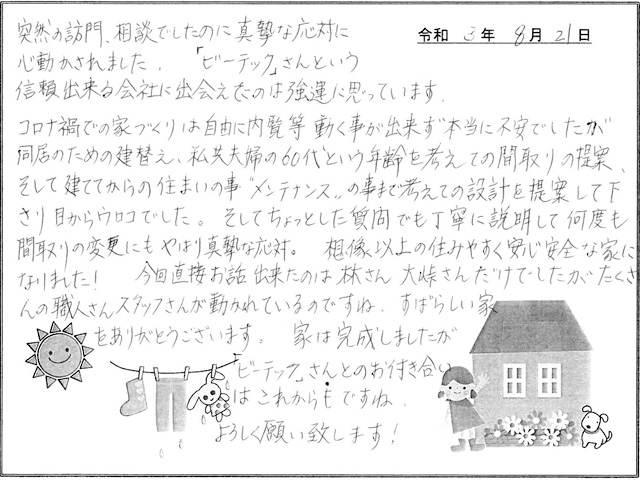 令和 3年 8月 21日
突然の訪問、相談でしたのに真摯な応対に
心動かされました。 「ビーテック」さんという
信頼出来る会社に出会えたのは強運に思っています。
コロナ禍での家づくりは自由に内覧等 動く事が出来ず本当に不安でしたが
同居のための建替え、私共夫婦の60代という年齢を考えての間取りの提案、
そして建ててからの住まいの事〝メンテナンス〟の事まで考えての設計を提案して下
さり目からウロコでした。そしてちょっとした質問でも丁寧に説明して何度も
間取りの変更にもやはり真摯な応対。 想像以上の住みやすく安心安全な家に
なりました! 今回直接お話出来たのは林さん 大峠さんだけでしたがたくさ
んの職人さんスタッフさんが動かれているのですね。すばらしい家
をありがとうございます。 家は完成しましたが
「ビーテック」さんとのお付き合い
はこれからもですね。
よろしく願い致します!